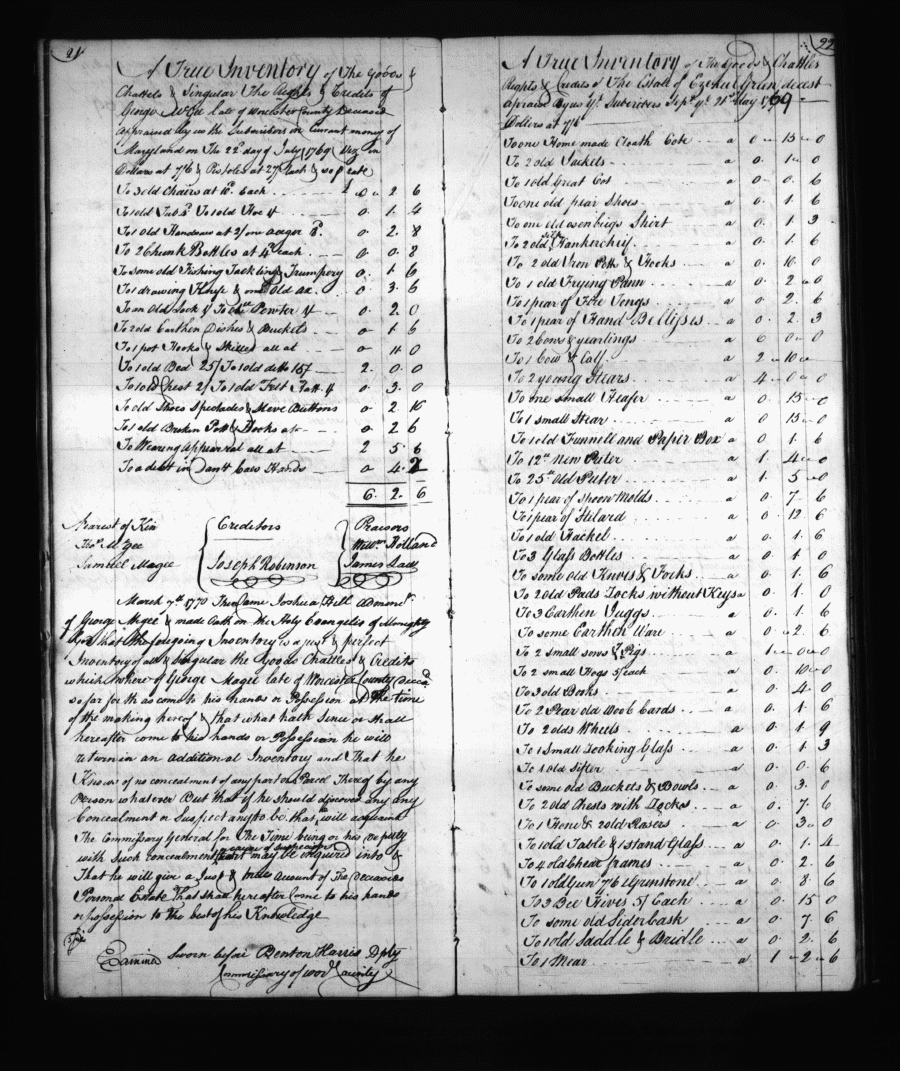 21
A True Inventory of The Goods &
Chattels & Singular The Rights & Credits of
George late of Worcester County Deceased
appraised by us the Subscribers in Currant money of
Maryland on The 22d day of July 1769 Viz in
Dollars at 7/6 & Pistoles at 27/ Each & so pr rate
To 3 old Chairs at 10d Each 0 2 6
To 1 old Tub To 1 old Hoe 0 1 4
To 1 old Handsaw at 2/ one auger 8d 0 2 8
To 2 Chunk Bottles at 4d each 0 0 8
To some old Fishing Tackling & Trumpery 0 1 6
To 1 drawing Knife & one Old ax 0 3 6
To an Old Jack & To Pewter 0 2 0
To 2 old Earthen Dishes & Buckets 0 1 6
To 1 pot Hooks & Skilled all at
To 1 old Bed 25/ To 1 old ditto 15/ 2 0 0
To 1 old Chest 2/ To 1 old Felt Hatt 0 3 0
To old Shoes Spectacles & Sleve Buttons 0 2
To 1 old Broken Pott & Hooks at 0 2 6
To Wearing Apparrel all at 2 5 6
To a debt in Hands 0 4 2
6 2 6
Nearest of Kin Creditors Praisors
Thos McGee Willm Holland
Samuel Magee Joseph Robinson James
March 7th 1770 Then Came Joshua Hill
of George Magee & made Oath on the Holy Evangelis of Almighty
God that the foregoing Inventory is a just & perfect
Inventory of all & Singular the Goods Chattles & Credits
which where of George Magee late of Worcester County Deceasd
so far forth as come to his hands or Possession at the time
of the making hereof & that what hath Since or Shall
hereafter come to his hands or Possession he will
return in an additional Inventory and That he
Knows of no concealment of any part or Parcel Thereof by any
Person whatever But that if he should discover any any
Concealment or Suspect any to be that will acquaint
The Commissary General for The Time being or his Deputy
with Such concealment or cause of suspicion that may be inquired into &
That he will give a Just & true Account of The Deceasds
Personal Estate That shall hereafter Come to his hands
or possession to the best of his Knowledge
Examined Sworn before Benton Harris Dpty
Commissary of Worr County
22
A True Inventory of The Goods & Chattles
Rights & Credits of The Estate of Ezekiel Green deceast
apraisd By us ye Subcribers 21st May 1769
Dollars at 7/6
To one Home made Cloath Cote a 0 15 0
To 2 old Jackets a 0 1 0
To 1 old Great Cot a 0 0 6
To one old pear Shoes a 0 1 6
To one old Shirt a 0 1 3
To 2 old silk Hankerchif a 0 1 6
To 2 old Iron Potts & Hooks a 0 10 0
To 1 old Frying Pann a 0 2 0
To 1 pear of Fire Tongs a 0 2 6
To 1 pear of Hand Bellisses a 0 2 3
To 2 Cows & yearlings a 0 0
To 1 Cow & Calf a 2 10 0
To 2 young Stears a 4 0 0
To one small Heafer a 0 15 0
To 1 small Stear a 0 15 0
To 1 old Funnell and Paper Box a 0 1 6
To 12lb New Puter a 1 4 0
To 25lb Old Puter a 1 5 0
To 1 pear of Spoon Molds a 0 7 6
To 1 pear of Stilard a 0 12 6
To 1 old Hackel a 0 1 6
To 3 Glass Bottles a 0 1 0
To some Old Knives & Forks a 0 1 6
To 2 old Pads Locks without Keys a 0 1 0
To 3 Earthen Juggs a 0 1 6
To some Earthen Ware a 0 2 6
To 2 small sows & Pigs a 1 0 0
To 2 small Hogs 5/ each a 0 10 0
To 3 old Books a 0 4 0
To 2 Pear old Wool Cards a 0 1 6
To 2 olds Wheels a 0 1 9
To 1 Small Looking Glass a 0 1 3
To 1 old Sifter a 0 0 6
To some old Buckets & Bowls a 0 3 0
To 2 old Chests with Locks a 0 7 6
To 1 Hone & 2 old Rasers a 0 3 0
To 1 old Table & 1 stand Glass a 0 1 4
To 4 old Chear frames a 0 2 6
To 1 old Gun 7/6 1 Grinstone a 0 8 6
To 3 Bee Hives 5/ Each a 0 15 0
To some old Siderbask a 0 7 6
To 1 old Saddle & Bridle a 0 2 6
To 1 Mear a 1 2 6